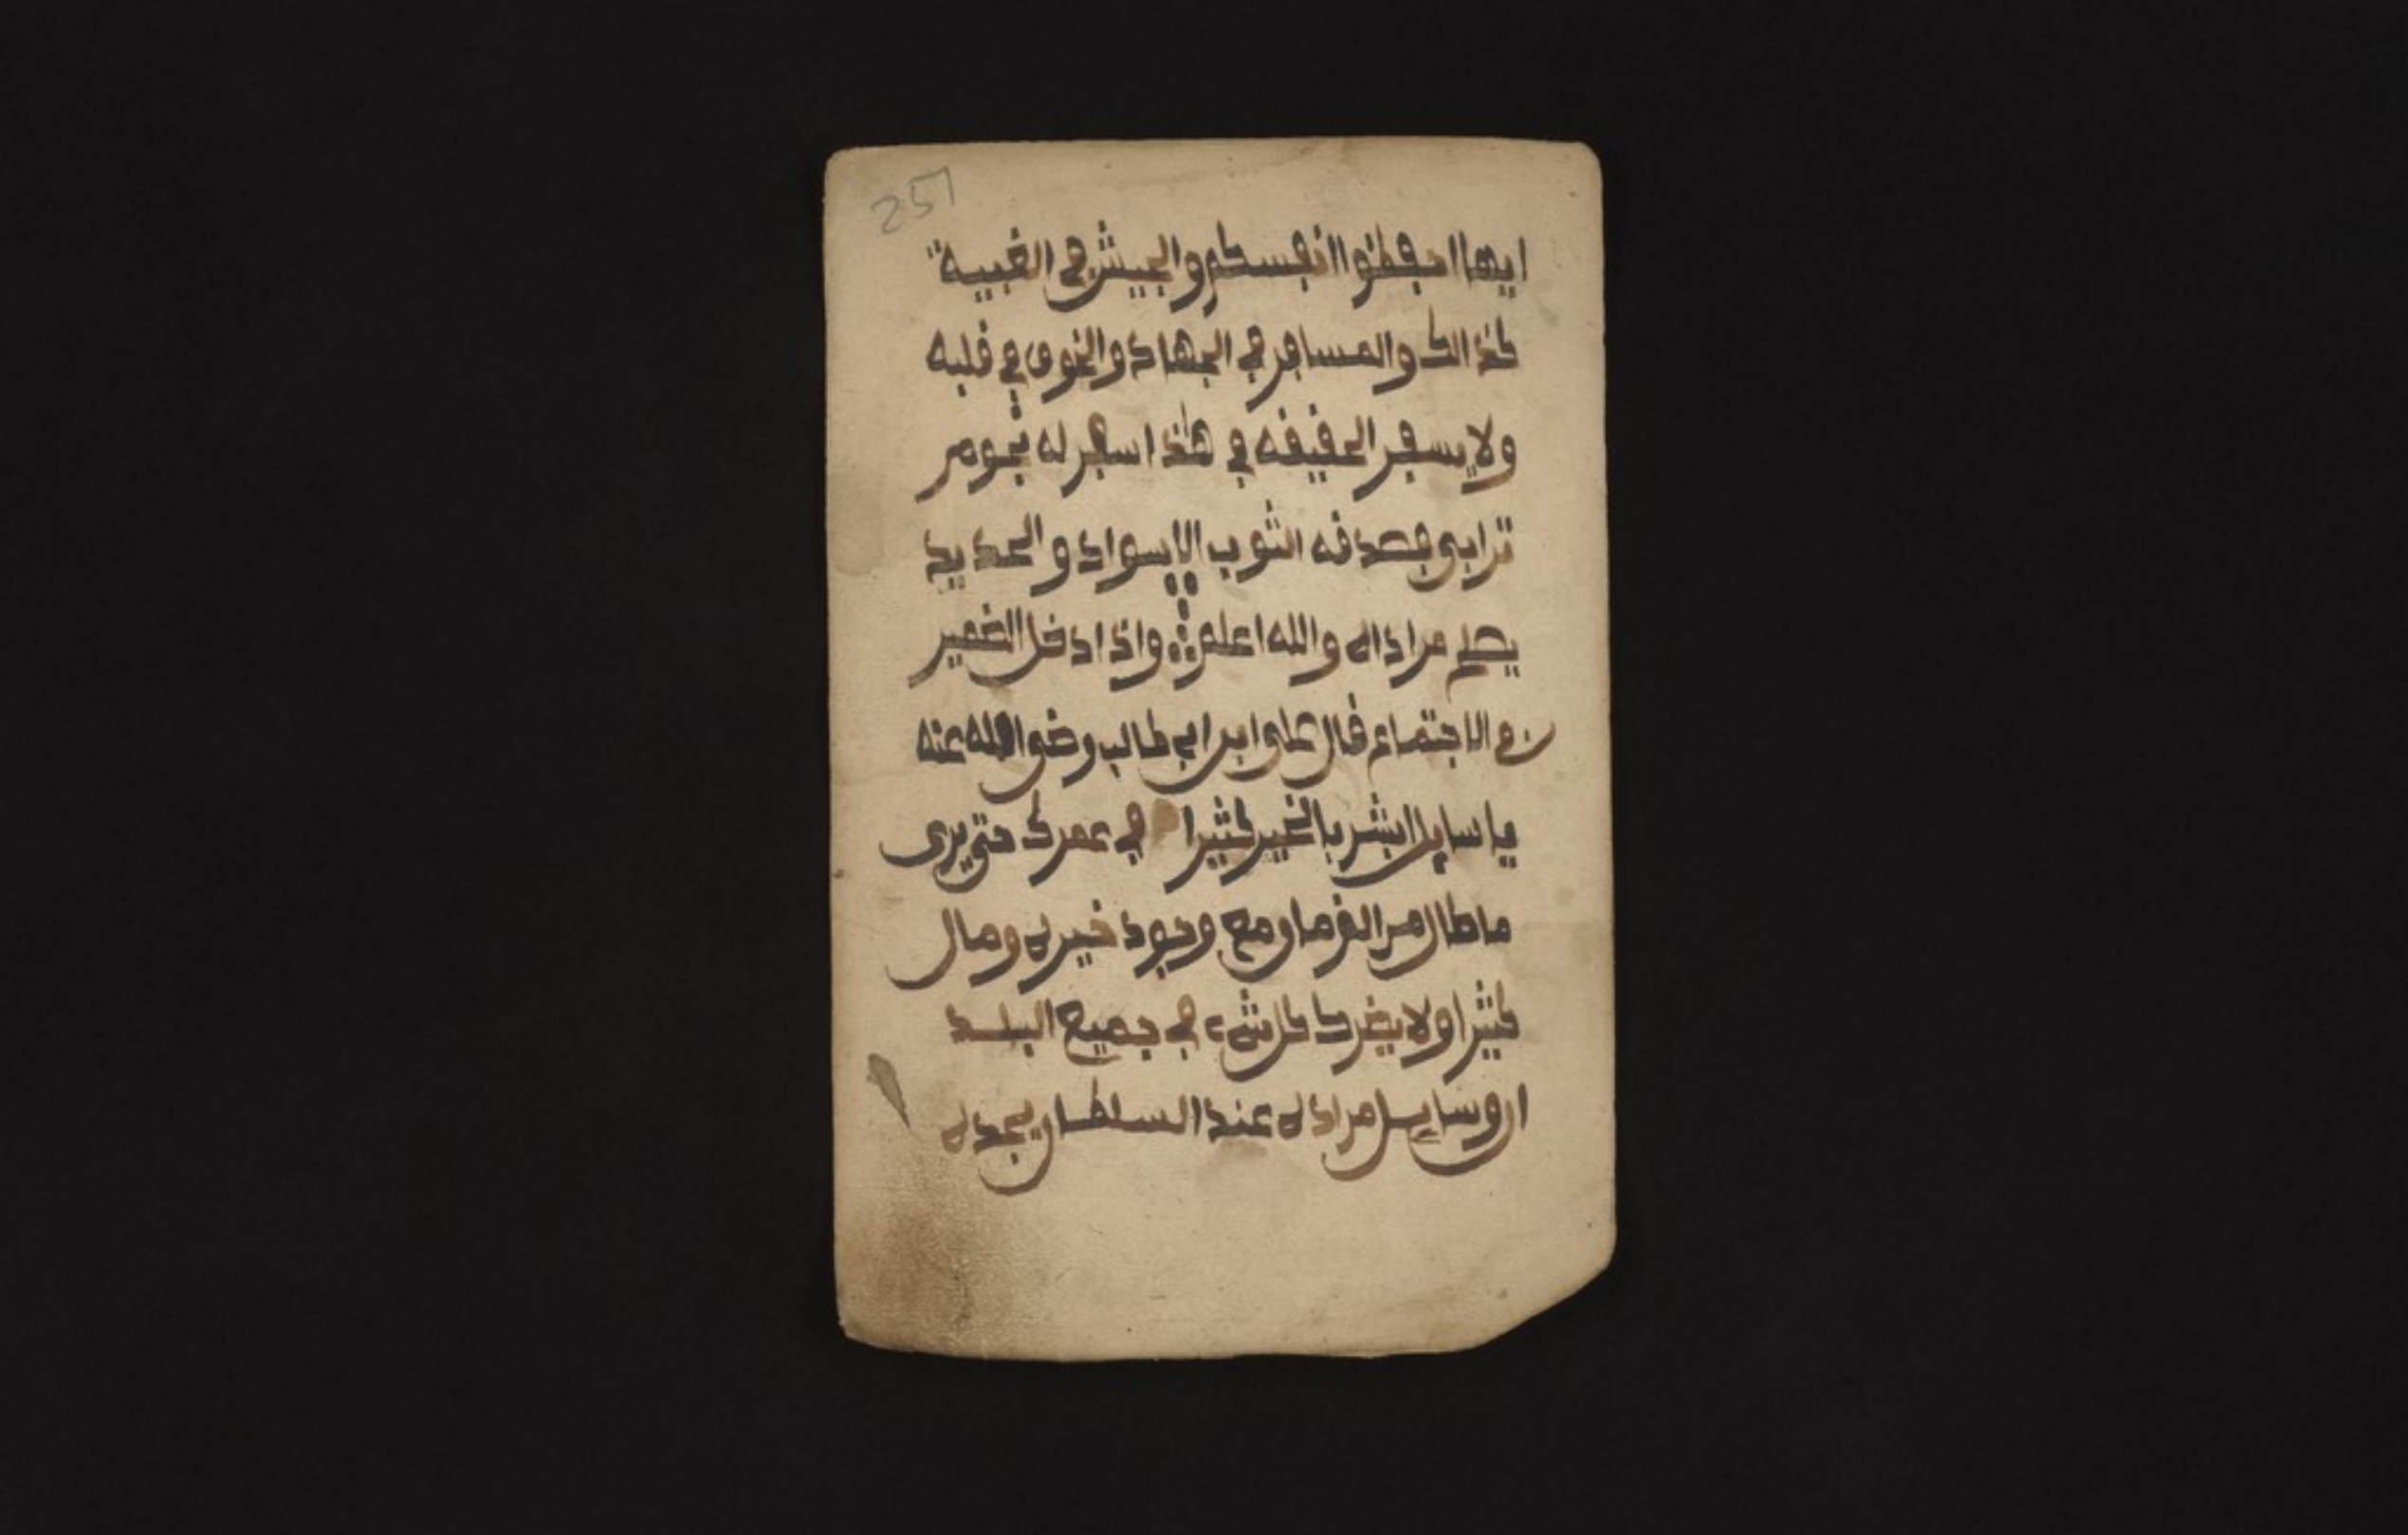 251
ايها احفظوا انفسكم والجيش في الغيبة
كذالك والمسافر في الجهاد والخوف في قلبه
ولا يسفر الحقيقه في هذا اسفر له نجومر
ترابي فصدقه الثوب الاسواد والحديد
يصلح مراد اله والله اعلم واذا دخل الضمير
في الاجتماع قال علي ابن ابي طالب رضي الله عنه
يا سايل ابشر بالخير كثيرا في عمرك حتى يرى
ما طال من الزمان ومع وجود خير له ومال
كثيرا ولا يضرك كل شيء في جميع البلد
ان وسايل مراد له عند السلطان يجد له